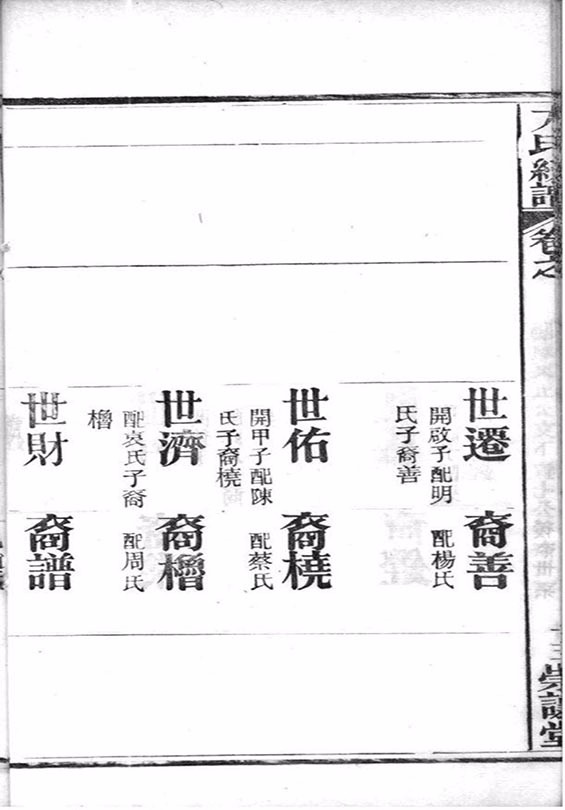 方氏續譜
卷之
十三 崇譓堂
世遷
開啟子配明
氏子裔善
裔善
配楊氏
世佑
開甲子配陳
氏子裔橈
裔橈
配蔡氏
世濟
配袁氏子裔
櫓
裔櫓
配周氏
世財
裔譜